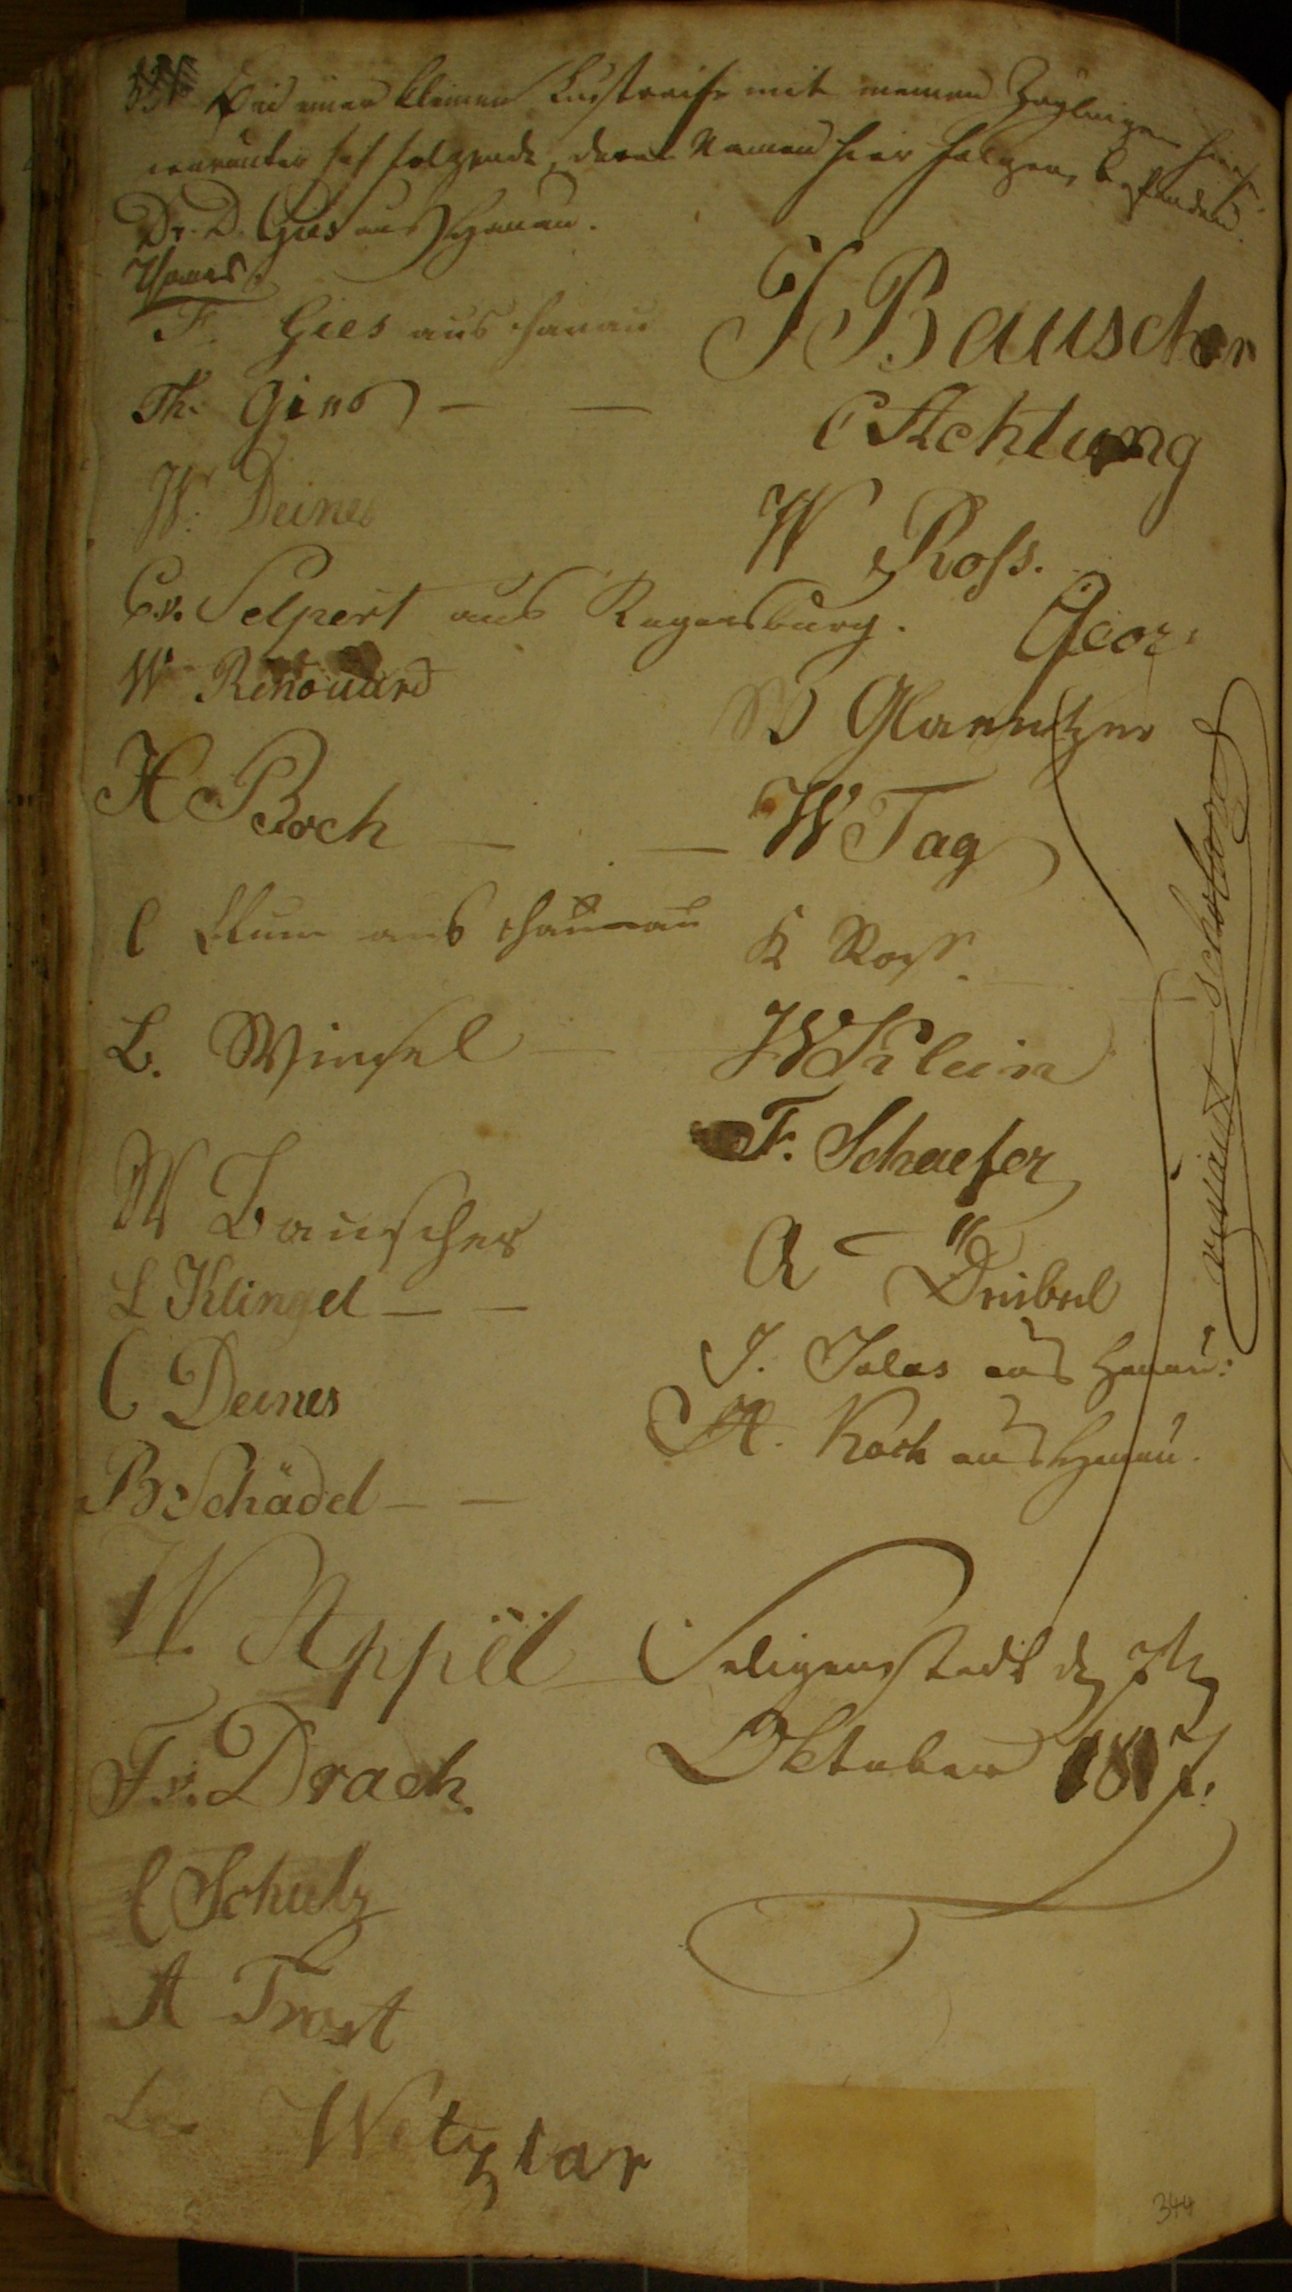 einer kleinen Lustreise mit meinen Zöglingen hier,
worunter sich folgende, deren Namen hier folgen, befanden.
Dr. D. Gies aus Hanau.
F. Gies aus Hanau
Th. Gies — —
W. Deines
C. v. Selpert aus Regensburg.
W Renouard
H Boch — —
C Blum aus Hanau
L. Winsel —
W Bauscher
L Klingel — —
C Deines
B Schädel — —
W. Appel
F. v. Drach.
C Schulz
A Trost
Wetzlar
J Bauscher
C Achtung
W Ross.
Geor:
Glanntzer
W Tag
K Ross.
W Klein
F. Schaefer
A — Deibel
J. Jalas aus Hanau:
H. Koch aus Hanau.
Seligenstadt den 7ten
Oktober 1817.
344